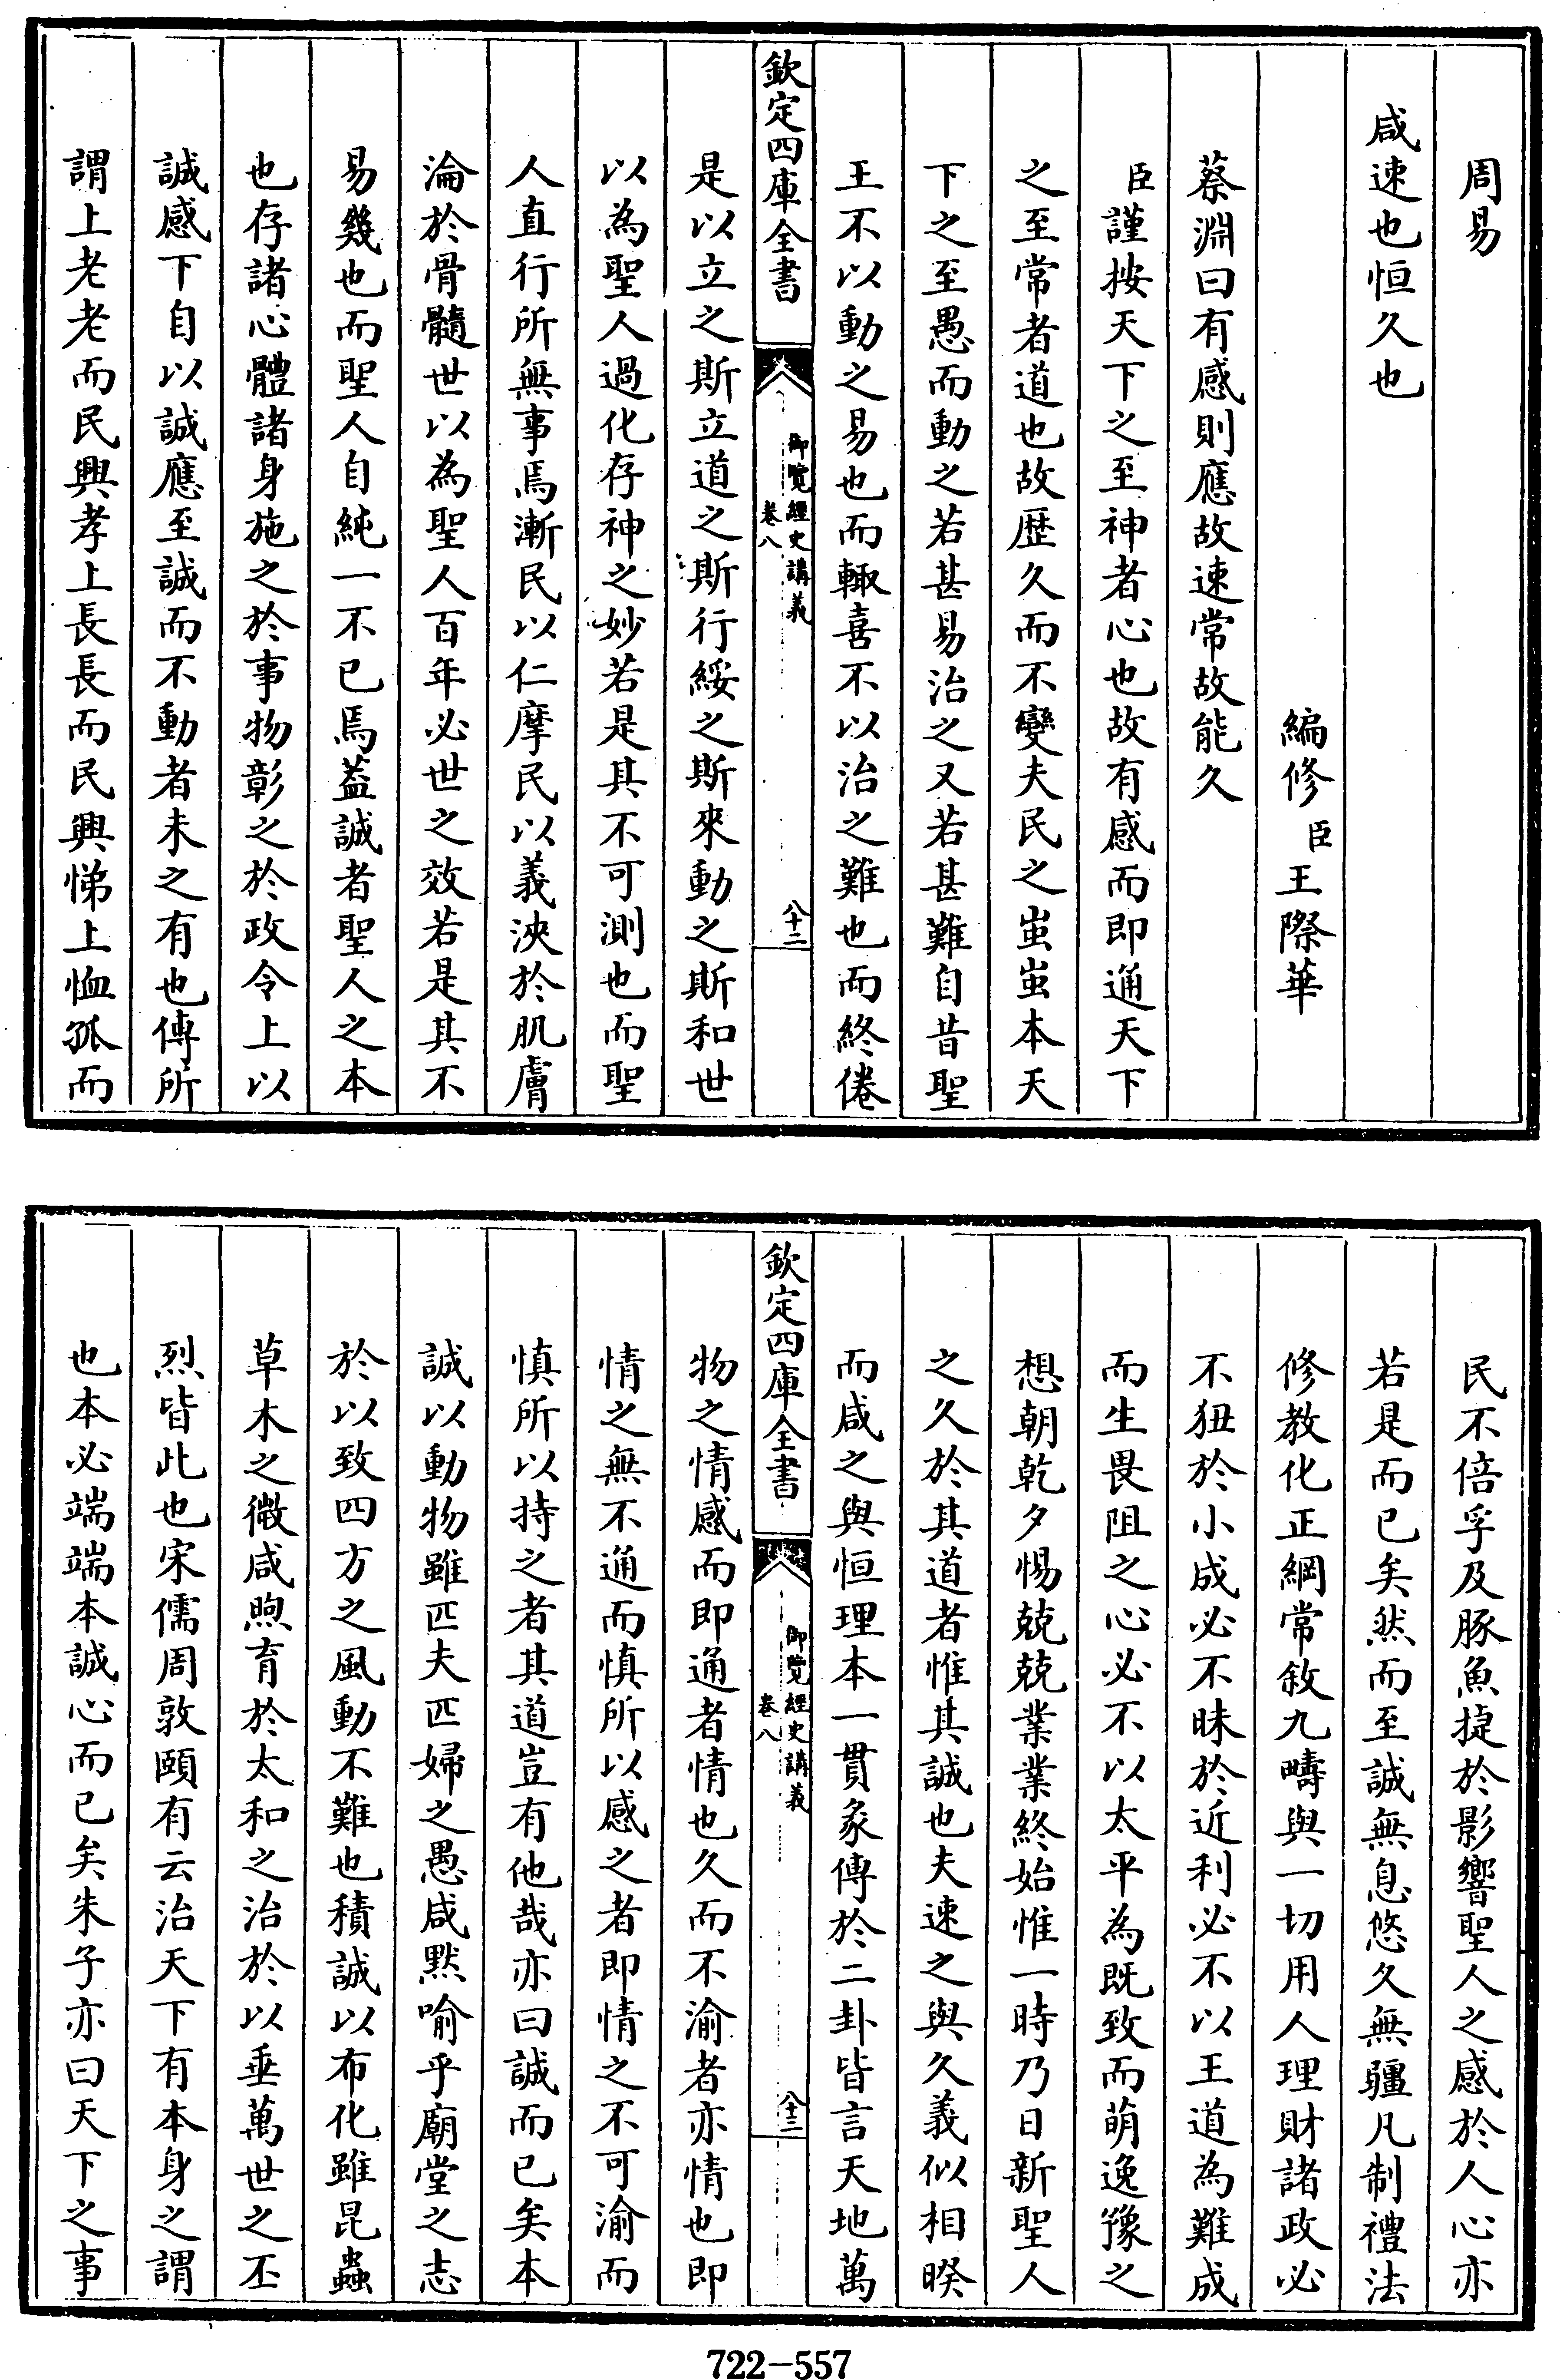 周易
咸速也恒久也
編修臣王際華
蔡淵曰有感則應故速常故能久
臣謹按天下之至神者心也故有感而即通天下
之至常者道也故歴久而不變夫民之蚩蚩本天
下之至愚而動之若甚易治之又若甚難自昔聖
王不以動之易也而輙喜不以治之難也而終倦
欽定四庫全書
御覽經史講義
卷八
八十二
是以立之斯立道之斯行綏之斯來動之斯和世
以為聖人過化存神之妙若是其不可測也而聖
人直行所無事焉漸民以仁摩民以義浹於肌膚
淪於骨髓世以為聖人百年必世之效若是其不
易幾也而聖人自純一不已焉葢誠者聖人之本
也存諸心體諸身施之於事物彰之於政令上以
誠感下自以誠應至誠而不動者未之有也傳所
謂上老老而民興孝上長長而民興悌上恤孤而
民不倍孚及豚魚捷於影響聖人之感於人心亦
若是而已矣然而至誠無息悠久無疆凡制禮法
修教化正綱常敘九疇與一切用人理財諸政必
不狃於小成必不昧於近利必不以王道為難成
而生畏阻之心必不以太平為既致而萌逸豫之
想朝乾夕惕兢兢業業終始惟一時乃日新聖人
之久於其道者惟其誠也夫速之與久義似相暌
而咸之與恒理本一貫彖傳於二卦皆言天地萬
欽定四庫全書
御覽經史講義
卷八
八十三
物之情感而即通者情也久而不渝者亦情也即
情之無不通而慎所以感之者即情之不可渝而
慎所以持之者其道豈有他哉亦曰誠而已矣本
誠以動物雖匹夫匹婦之愚咸黙喻乎廟堂之志
於以致四方之風動不難也積誠以布化雖昆蟲
草木之微咸煦育於太和之治於以垂萬世之丕
烈皆此也宋儒周敦頤有云治天下有本身之謂
也本必端端本誠心而已矣朱子亦曰天下之事
722-557